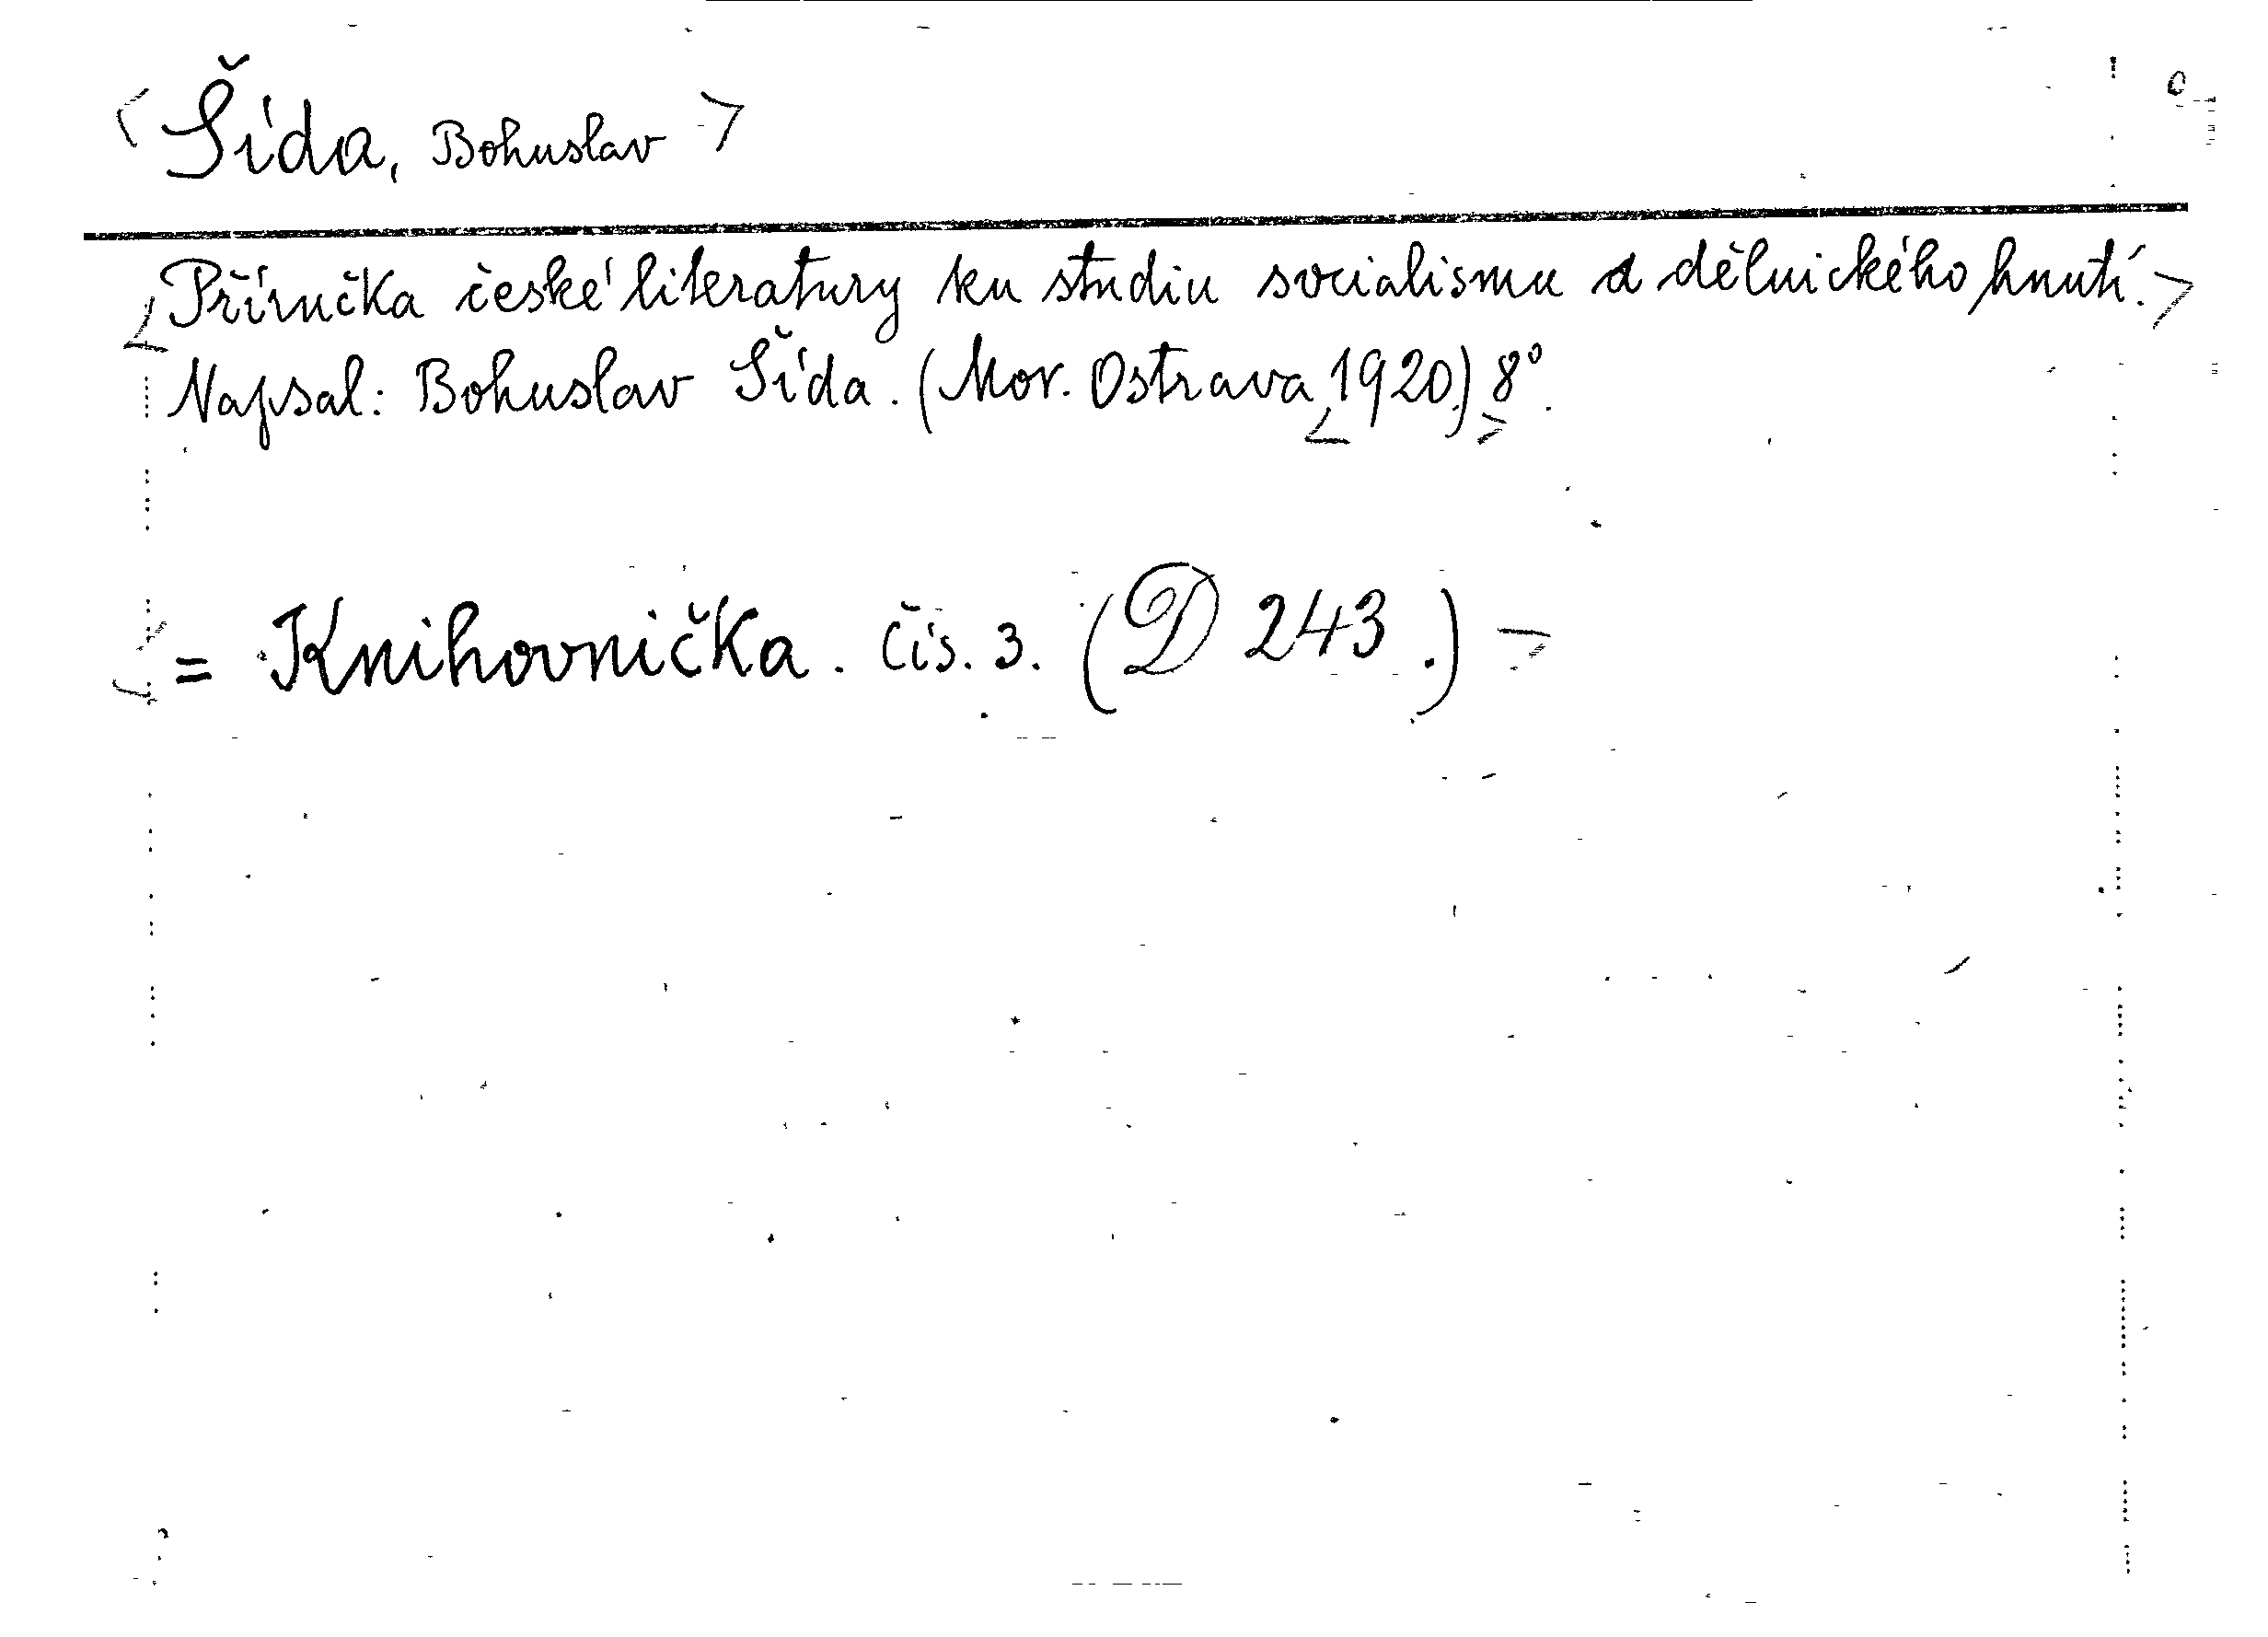 <Šída, Bohuslav>
<Příručka české literatury ku studiu socialismu a dělnického hnutí.>
Napsal: Bohuslav Šída. (Mor. Ostrava <1920.) 8°>.
<= Knihovnička. Čís. 3. (D 243.)>